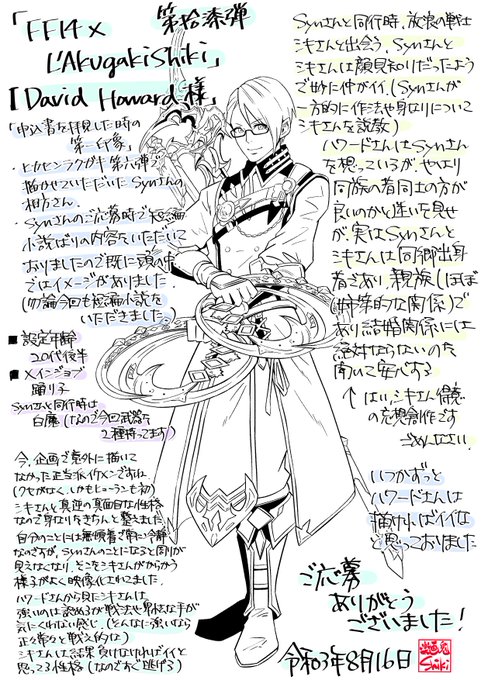 「FF14×
L'Akugakishiki」
第拾漆弾
『David Howard様』
「申込書を拝見した時の
第一印象」
・ヒカセンラクガキ第六弾で
描かせていただいたSynさんの
相方さん。
・Synさんのご応募時で短編
小説ばりの内容をいただいて
おりましたので既に頭の中
ではイメージがありました。
(勿論今回も短編小説を
いただきました。)
■設定年齢
20代後半
■メインジョブ
踊り子
Synさんと同行時は
白魔(なので今回武器を
2種持ってます)
今企画で意外に描いて
なかった正当派イケメンですね。
(クセがなく、しかもヒューランも初)
シキさんと真逆の真面目な性格
なので身なりをきちんと整えました
自分のことには無頓着で常に冷静
なのですが、Synさんのことになると周りが
見えなくなり、そこをシキさんがからかう
様子がよく映像化されました。
ハワードさんから見たシキさんは
強いのは認めるが戦法や卑怯な手が
気にくわない感じ。(そんなに強いなら
正々堂々と戦え的な)
シキさんは結果負けなければイイと
思ってる性格(なのですぐ逃げる)
Synさんと同行時、放浪の戦士
シキさんと出会う。Synさんと
シキさんは顔見知りだったよう
で妙に仲がイイ。(Synさんが
一方的に作法や身なりについて
シキさんを説教)
ハワードさんはSynさん
を想っているが、やはり
同族の者同士の方が
良いのかと迷いを見せ
るが、実はSynさんと
シキさんは同郷出身
者であり、親族(ほぼ
(姉弟的な関係)で
あり結婚関係には
絶対ならないのを
聞いて安心する
↑はい、シキさん得意
の妄想創作です
ごめんなさい。
いつかずっと
ハワードさんは
描ければイイな
と思っておりました
ご応募
ありがとう
ございました!
令和3年8月16日
Shiki